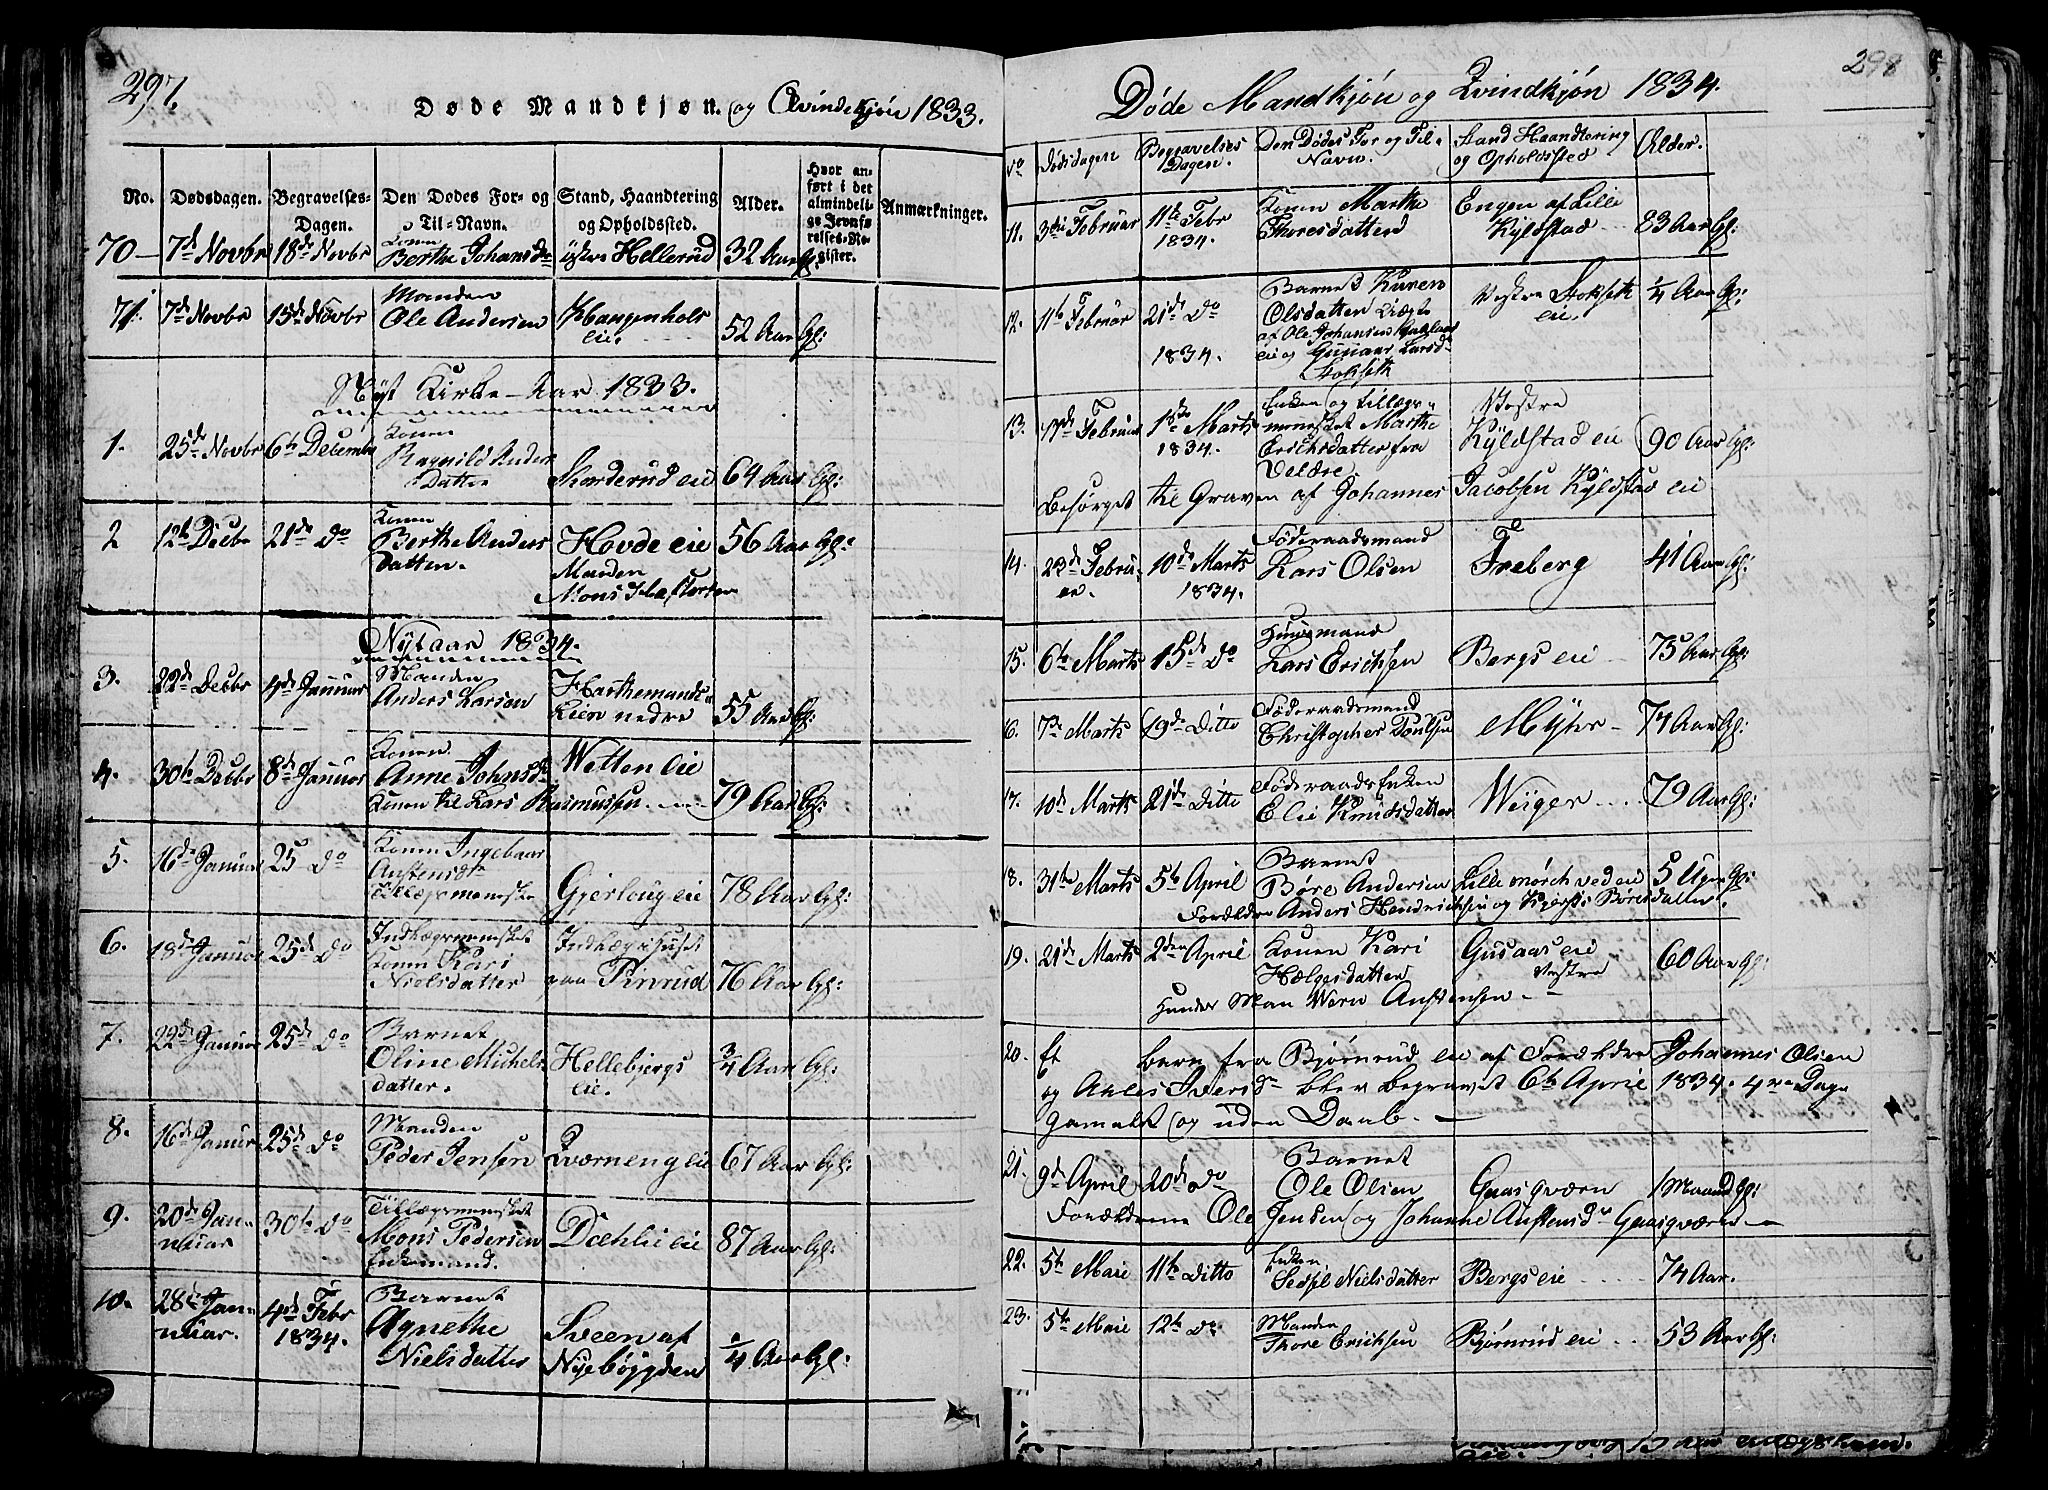 297.
Døde Mandkjøn. og Qvindekjøn 1833.
No. Dødsdagen. Begravelses-Dagen. Den Dødes For- og Til-Navn. Stand, Haandtering og Opholdsted. Alder. Hvor anført i det almindelige Jevnførelses-Register. Anmærkninger.
70 7de Novbr 18de Novbr Konen
Berthe Johansd. østre Hellerud 32 Aar gl.
71. 7de Novbr 15de Novbr Manden
Ole Andersen Haugenhols eie. 52 Aar gl:
Nyt Kirke-Aar 1833.
1. 25de Novbr 6te December Konen
Ragnild Anders Datter Skorderud eie 64 Aar gl:
2 12te Decbr 21de do Konen
Berthe Anders Datter. Hovde eie 56 Aar gl:
Manden
Mons
Nytaar 1834.
3. 22de Decbr 4de Januar Manden
Anders Larsen Harthemands Eien nedre 55 Aar gl:
4. 30te Decbr 8de Januar Konen
Anne Johnsd. Wetten eie
Konen til Lars Rasmussen 79 Aar gl:
5. 16de Januar 25 do Konen Ingebaar
Austensdt.
Tillægsmenneske Gjerloug eie 78 Aar gl:
6. 18de Januar 25de do Indlægsmennesket Indlæg i huset
Konen Kari
Nielsdatter paa Finrud 76 Aar gl:
7. 22de Januar 25de do Barnet
Oline Michels datter. Hellebjergs eie. 3/4 Aar gl:
8. 16de Januar 25de do Manden
Peder Jensen Qværneng eie 67 Aar gl:
9. 20de Januar 30te do Tillægsmennesket
Mons Pedersen Dæhlie eie 87 Aar gl:
Enkemand.
10. 28de Januar. 4de Febr 1834. Barnet
Agnethe Nielsdatter Sveen af Nyebøygden 1/4 Aar gl:
298
Døde Mandkjøn og Qvindkjøn 1834.
No Dødsdagen Begravelses Dagen. Den Dødes For og Til-Navn. Stand Haandtering og Opholdssted Alder.
11. 3die Februar 11te Febr 1834. Konen Marthe
Thoresdatter Engen af Lille Kyldstad 83 Aar gl:
12. 11te Februar 21de do 1834. Barnet Karen
Olsdatter Uægte
af Ole Johansen
eie og Gunaar Larsd.
Stokseth Vestre Stokseth eie. 1/4 Aar gl:
13. 17de Februar 1ste Marts 1834. Enken og tillægs-
mennesket Marthe
Erichsdatter fra
Valdre Vestre Kyldstad eie 90 Aar gl:
Besørget til Graven af Johannes Jacobsen Kyldstad eie
14. 23de Februar. 10de Marts 1834. Føderaadsmand
Lars Olsen Freberg 41 Aar gl:
15. 6te Marts 15de do Huusmand
Lars Erichsen Bergs eie 75 Aar gl:
16. 7de Marts 19de Ditto Føderaadsmand
Christopher Poulsen Myhr 74 Aar gl:
17. 10de Marts 21de Ditto Føderaads Enken
Elie Knudsdatter Weiger 79 Aar gl:
18. 31te Marts 5te April Barnet
Børe Andersen Lille mørch ved eie 5 Uger gl:
Forældre Anders Hendrichsen og Kjersti Børesdatter.
19. 21de Marts 2den April Konen Kari
Helgesdatter Gusaas eie vestre 60 Aar gl:
Hendes Man Wern Austensen
20. Et Barn fra Bjørnrud eie af Forældre Johannes Olsen
og Ahles Iversd. blev begravet 6te April 1834. 4re Dage
gamalt og uden Daab.
21. 9de April 20de do Barnet
Ole Olsen Gaasqværn 1 Maaned gl:
Forældrene Ole Jensen og Johanne Austensd. Gaasqværn
22. 5te Maie 11te Ditto Enken
Sedsel Nielsdatter Bergs eie 74 Aar.
23. 5te Maie 12te do Manden
Thore Erichsen Bjørnrud eie 53 Aar gl: